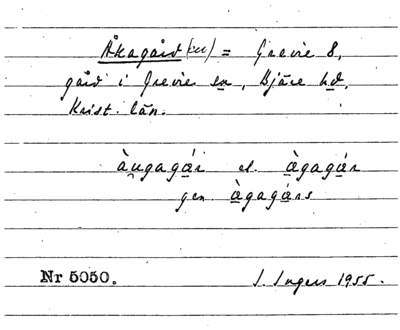 Åkagård (en) = Grevie 8,
gård i Grevie sn, Bjäre hd,
Krist. län.
àu̯gagár el. àgagár
gen. àgagárs
Nr 5050. I. Ingers 1955.